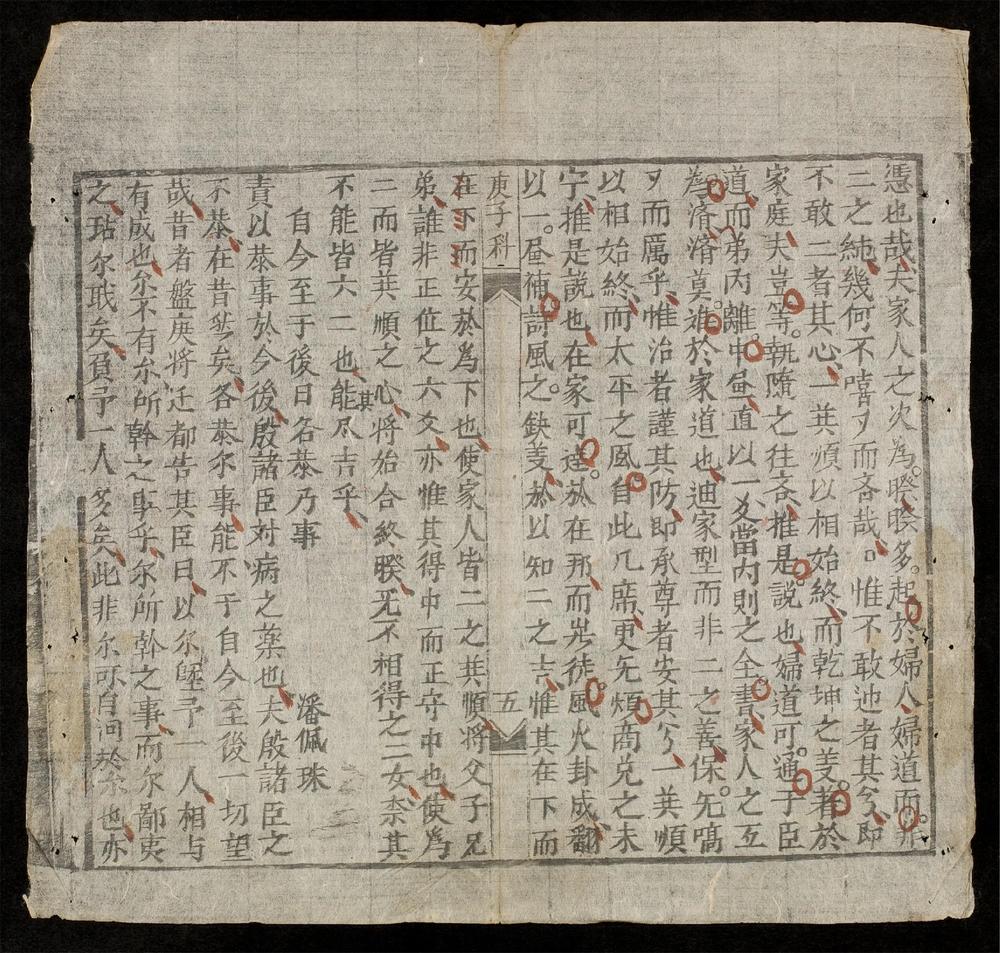 憑也哉夫家人之次為睽睽多起於婦人婦道而非
二之純幾何不嘻㐅而吝哉惟不敢迆者其分即
不敢二者其心一其順以相始終而乾坤之義著於
家庭夫豈等執隨之往吝推是說也婦道可通子臣
道而弟丙離中㫷直以一爻當內則之全書家人之五
為済済莫進於家道也迪家型而非二之善保旡嗃
㐅而厲乎惟治者謹其防即承尊者安其分一其順
以相始終而太平之風自此几席更旡煩商兌之未
宁推是說也在家可達於在邦而先徒風火卦成翻
以一㫷補詩風之缺義於以知二之吉惟其在下而
庚子科
五
在下而安於為下也使家人皆二之其順將父子兄
弟誰非正位之六爻亦惟其得中而正守中也使為
二而皆其順之心將始合終睽旡不相得之二女柰其
不能皆六二也能其尽吉乎
自今至于後日各恭乃事
潘佩珠
責以恭事於今後殷諸臣对病之藥也夫殷諸臣之
不恭在昔然矣各恭尔事能不于自今至後一切望
哉昔者盤庚将迁都告其臣曰以尔㙷予一人相与
有成也尔不有尔所幹之事乎尔所幹之事而尔鄙夷
之玷尔職矣負予一人多矣此非尔可自问於尔也亦